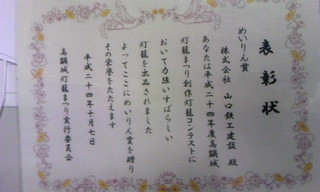 表彰状
めいりん賞
株式会社 山口鉄工建設 殿
あなたは平成二十四年度高鍋城
灯籠まつり創作灯籠コンテストに
おいて力強いすばらしい
灯籠を出品されました
よってここにめいりん賞を贈り
その栄誉をたたえます
平成二十四年十月七日
高鍋城灯籠まつり実行委員会